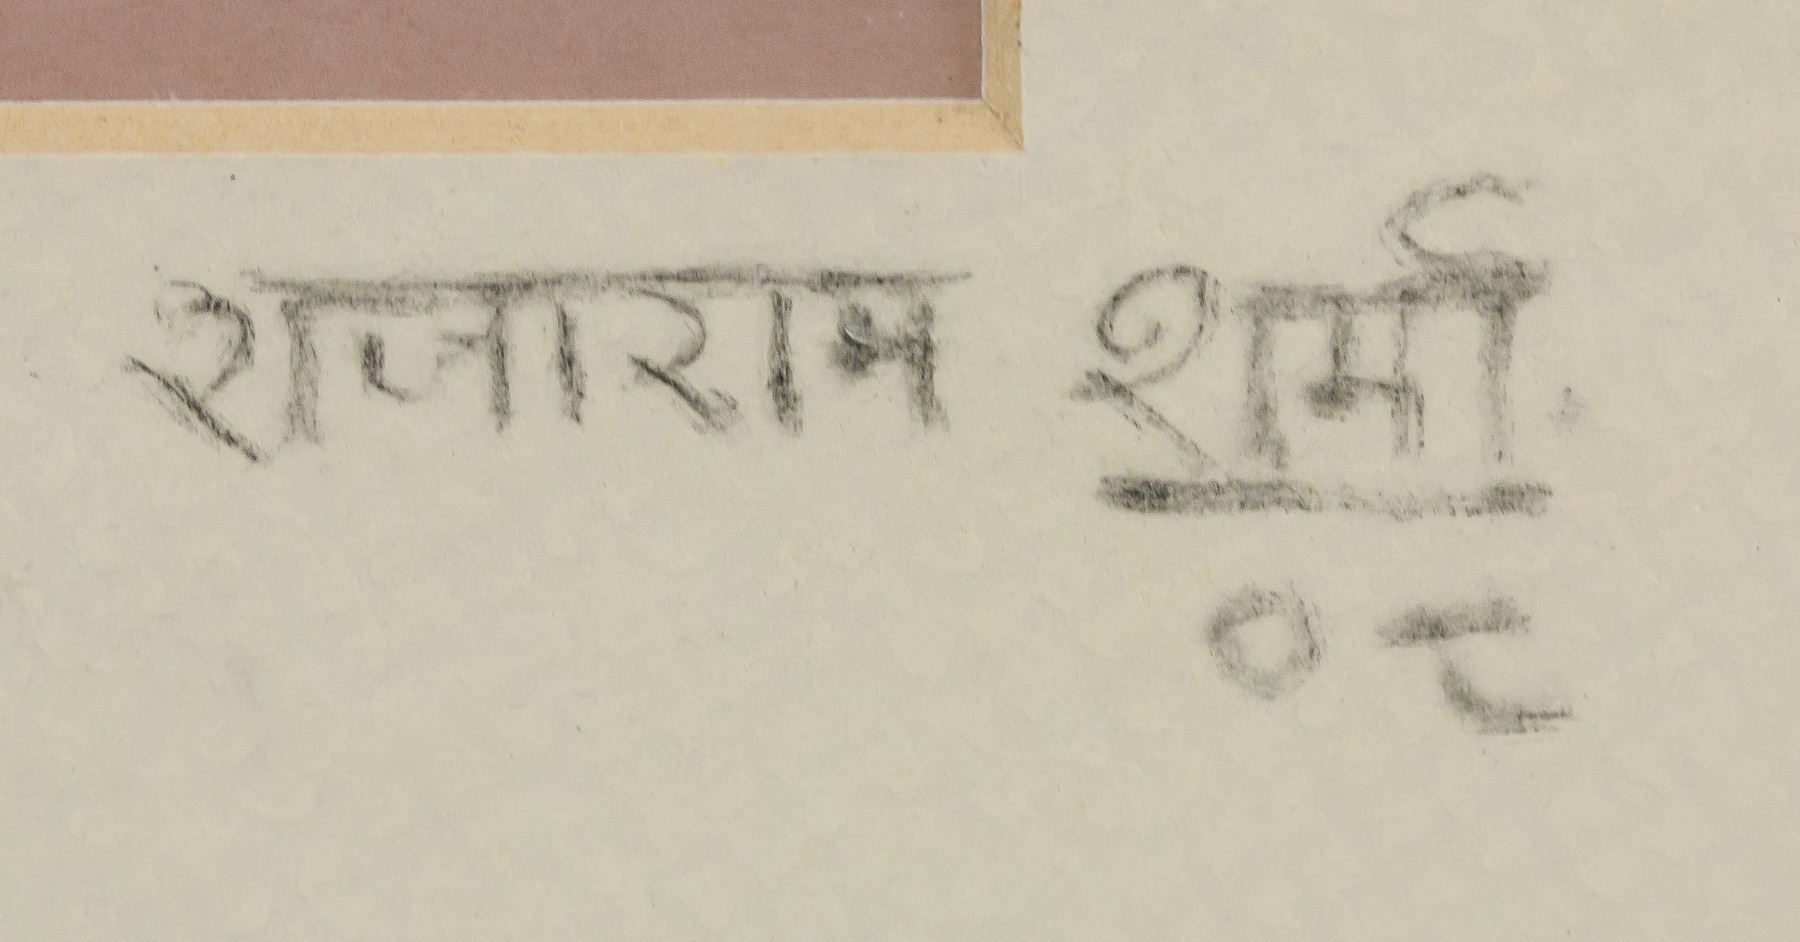 राजाराम शर्मा.
०८